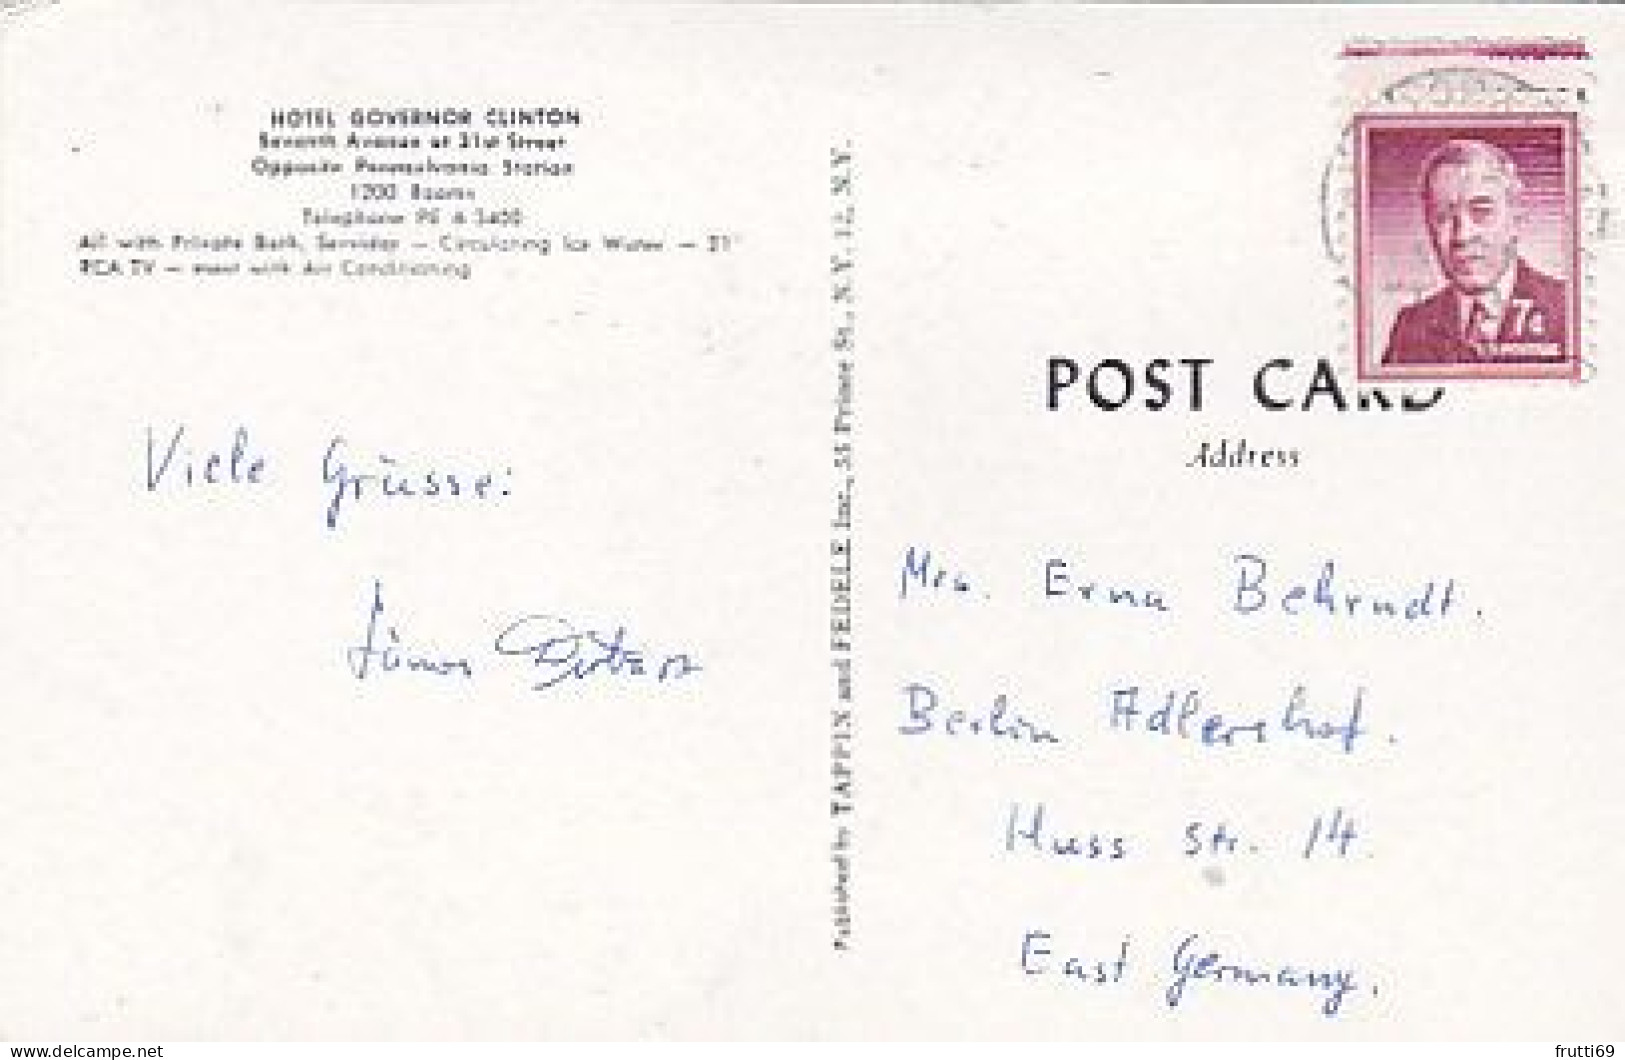 HOTEL GOVERNOR CLINTON
Seventh Avenue at 31st Street
Opposite Pennsylvania Station
1200 Rooms
Telephone PE 6 3400
All with Private Bath, Servidor — Circulating Ice Water — 21"
RCA TV — most with Air Conditioning
Viele Grüsse:
Published by TAPPIN and FEDELE Inc., 55 Prince St., N.Y. 12, N.Y.
7¢
POST CARD
Address
Mrs. Erna Behrndt.
Berlin Adlershof.
Huss Str. 14.
East Germany.
www.delcampe.net
frutti69